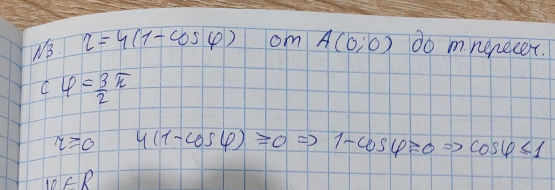 N3. r=4(1-cosφ) от A(0;0) до т.пересеч.
с φ=3/2 π
r≥0 4(1-cosφ)≥0 ⇒ 1-cosφ≥0 ⇒ cosφ≤1
φ∈R